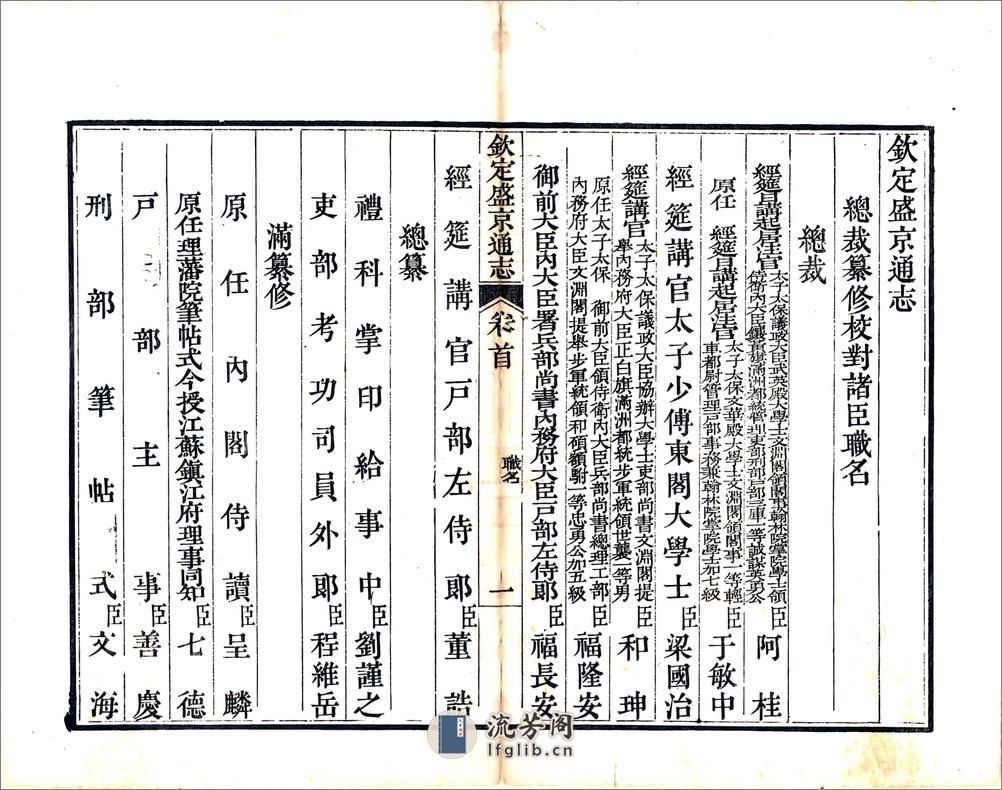 欽定盛京通志
總裁纂修校對諸臣職名
總裁
經筵日講起居注官太子太保議政大臣武英殿大學士文淵閣領閣事翰林院掌院學士領侍衛內大臣鑲黃旗滿洲都統管理吏部刑部戶部三庫一等誠謀英勇公臣阿桂
原任 經筵日講起居注官太子太保文華殿大學士文淵閣領閣事一等輕車都尉管理戶部事務兼翰林院掌院學士加七級臣于敏中
經筵講官太子少傅東閣大學士臣梁國治
經筵講官太子太保議政大臣協辦大學士吏部尚書文淵閣提舉內務府大臣正白旗滿洲都統步軍統領世襲一等男臣和珅
原任太子太保 御前大臣領侍衛內大臣兵部尚書總理工部內務府大臣文淵閣提舉步軍統領和碩額駙一等忠勇公加五級臣福隆安
御前大臣內大臣署兵部尚書內務府大臣戶部左侍郎臣福長安
欽定盛京通志 卷首 職名 一
經筵講官戶部左侍郎臣董誥
總纂
禮科掌印給事中臣劉謹之
吏部考功司員外郎臣程維岳
滿纂修
原任內閣侍讀臣呈麟
原任理藩院筆帖式今授江蘇鎮江府理事同知臣七德
戶部主事臣善慶
刑部筆帖式臣文海
流芳阁
lfglib.cn